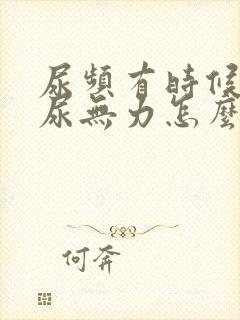 尿頻有時候
尿無力怎麼
何奔